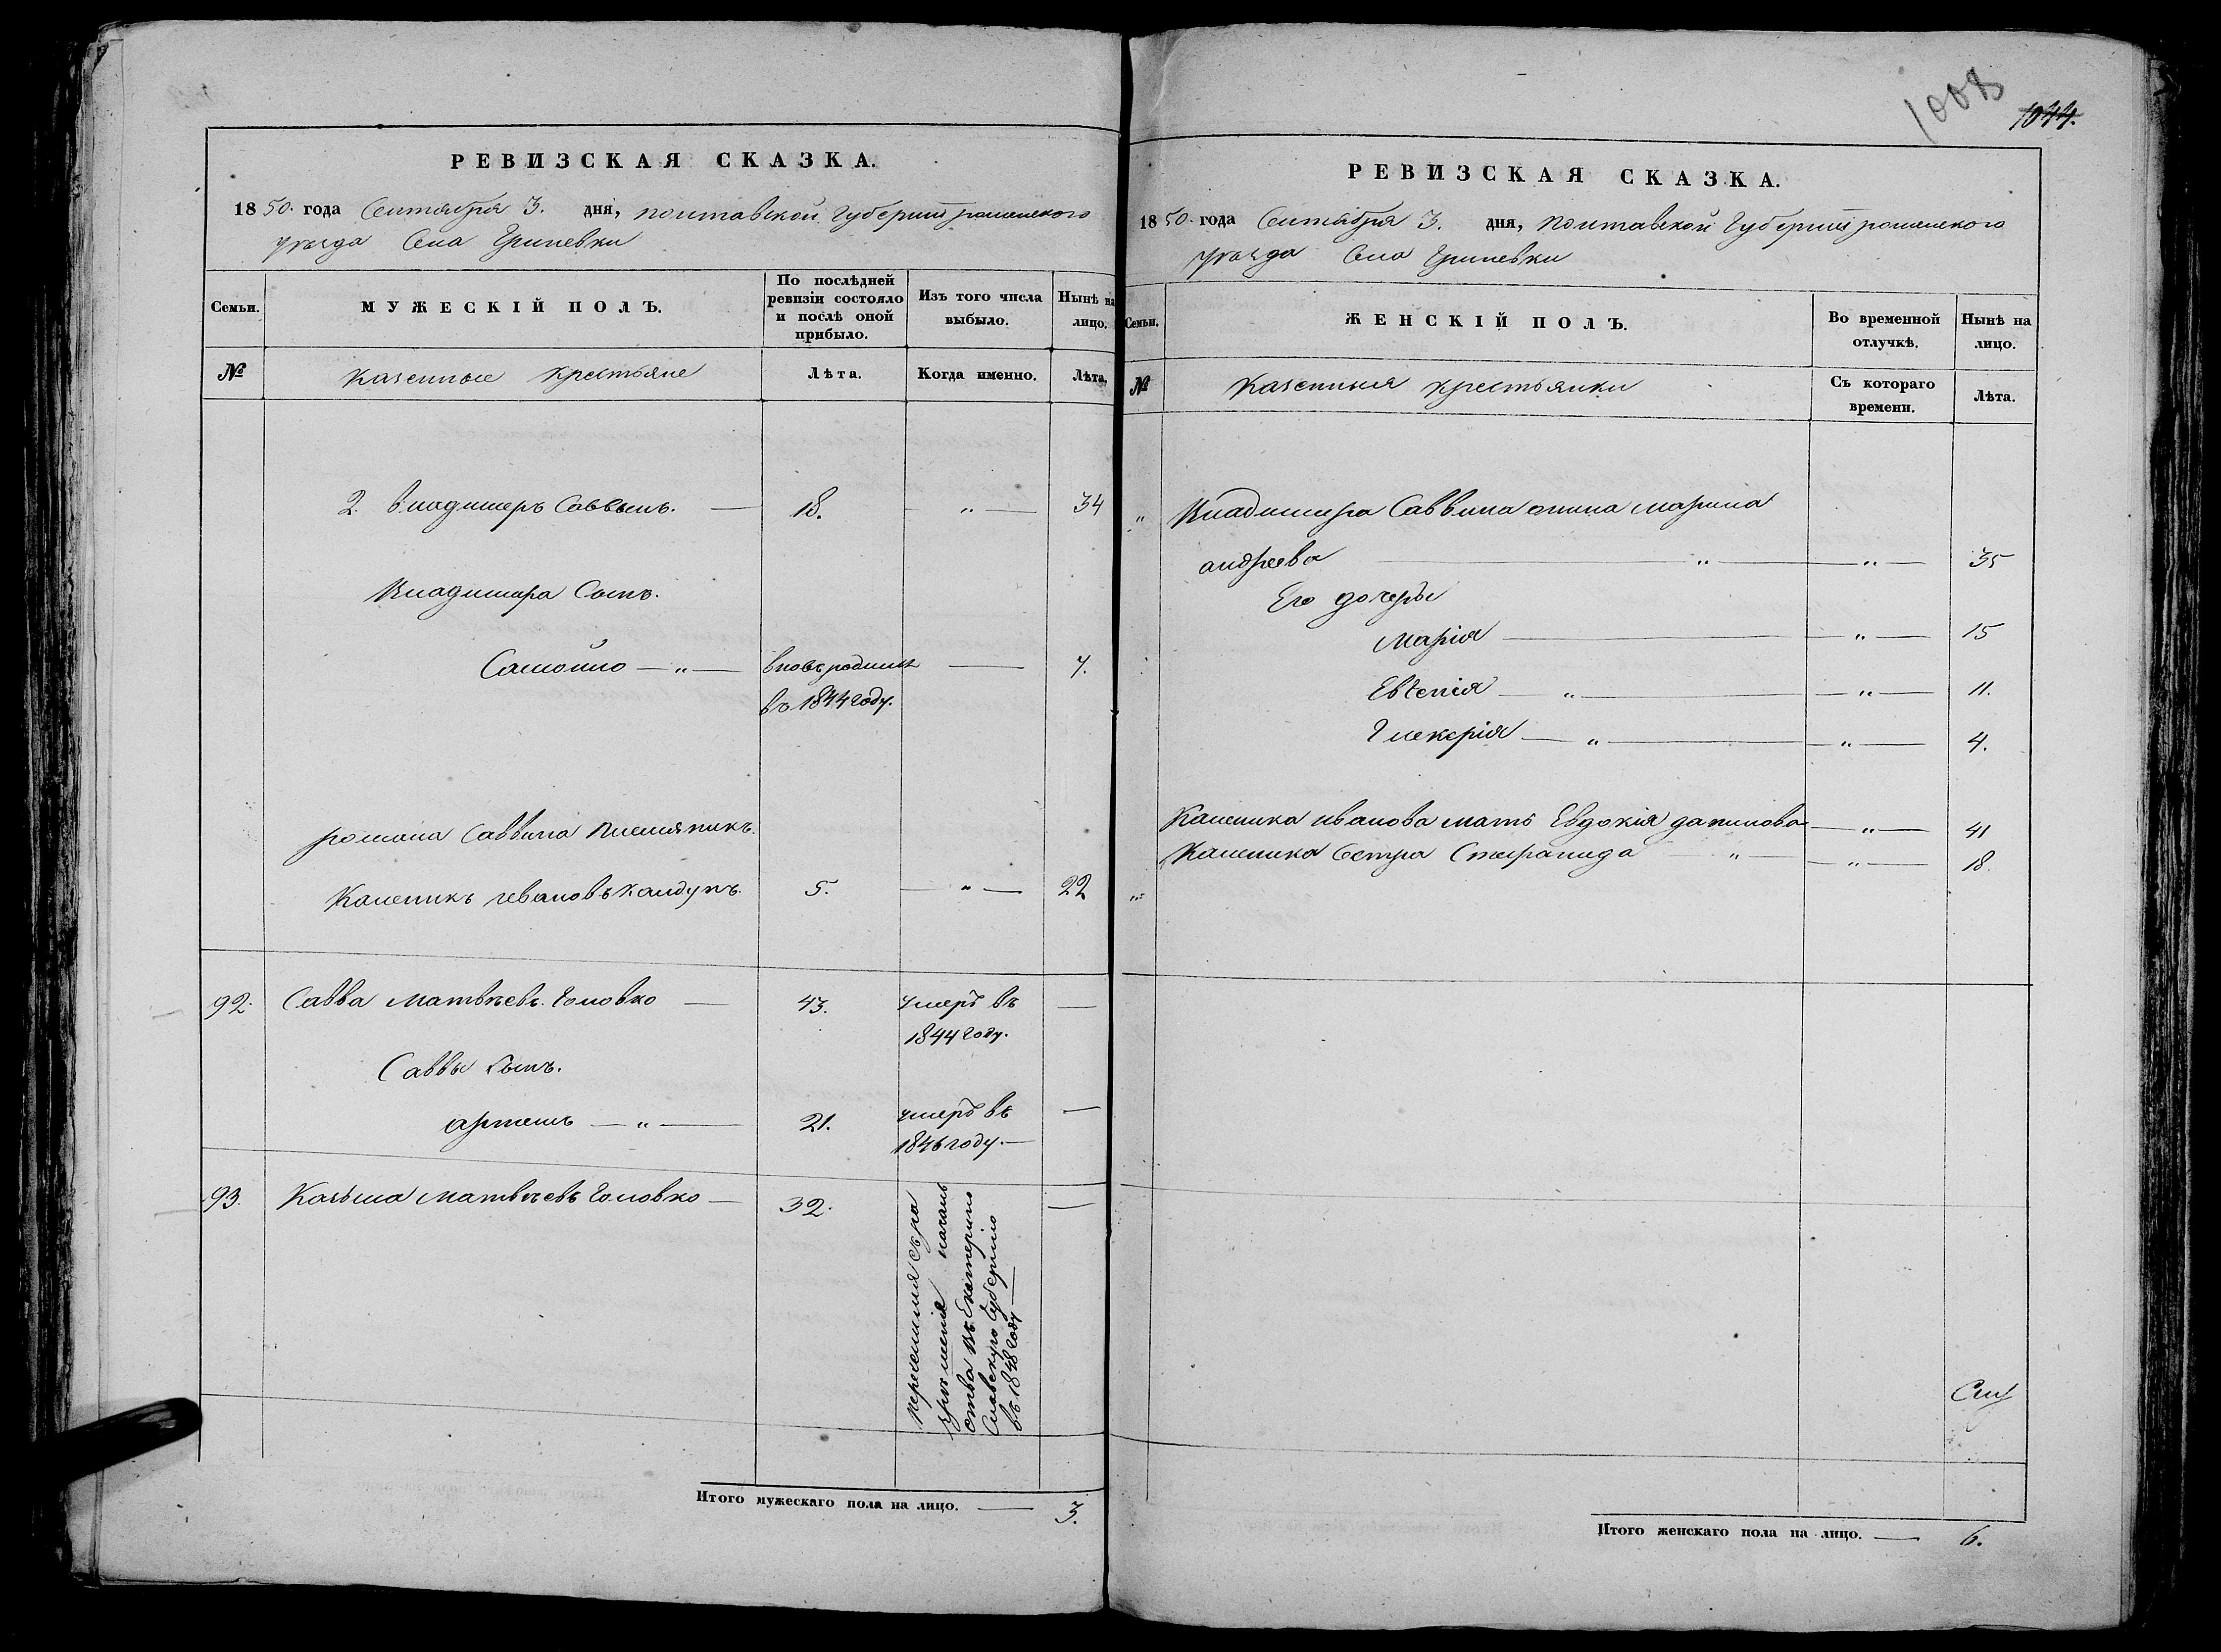 РЕВИЗСКАЯ СКАЗКА.
1850. года Сентября 3. дня, полтавской Губернии роменского
уезда Села Грипевки
Семьи. МУЖЕСКІЙ ПОЛЪ. По послѣдней ревизіи состояло и послѣ оной прибыло. Изъ того числа выбыло. Нынѣ на лицо.
№ Казенные крестьяне Лѣта. Когда именно. Лѣта.
2. Владимеръ Саввынъ. — 18. — „ — 34
Владимера Сынъ.
Самойло — „ — вновь родился — 7.
въ 1844 году.
романа Саввина племяникъ.
Каленикъ ивановъ 5. — „ — 22
92. Савва Матвѣевъ Головко — 43. умеръ въ —
1844 году.
Саввы Сынъ.
артемъ — „ — 21. умеръ въ —
1846 году. —
93. Козьма Матвѣевъ Головко — 32. —
въ Екатерино
Славскую Губернію
въ 1848 году —
Итого мужескаго пола на лицо. — 3.
1008
1044.
РЕВИЗСКАЯ СКАЗКА.
1850. года Сентября 3. дня, полтавской Губернии роменского
уезда Села Грипевки
Семьи. ЖЕНСКІЙ ПОЛЪ. Во временной отлучкѣ. Нынѣ на лицо.
№ Казенныя крестьянки Съ котораго времени. Лѣта.
„ Владимера Саввина жина марина
андреева — „ — — „ — 35
Его дочеры
Марія — — „ — 15
Евгенія — „ — — „ — 11.
Гликерія — „ — — „ — 4.
Калиника иванова мать Евдокія данилова — „ — 41
Калиника Сестра Степанида „ — — „ — 18.
„
Итого женскаго пола на лицо. — 6.